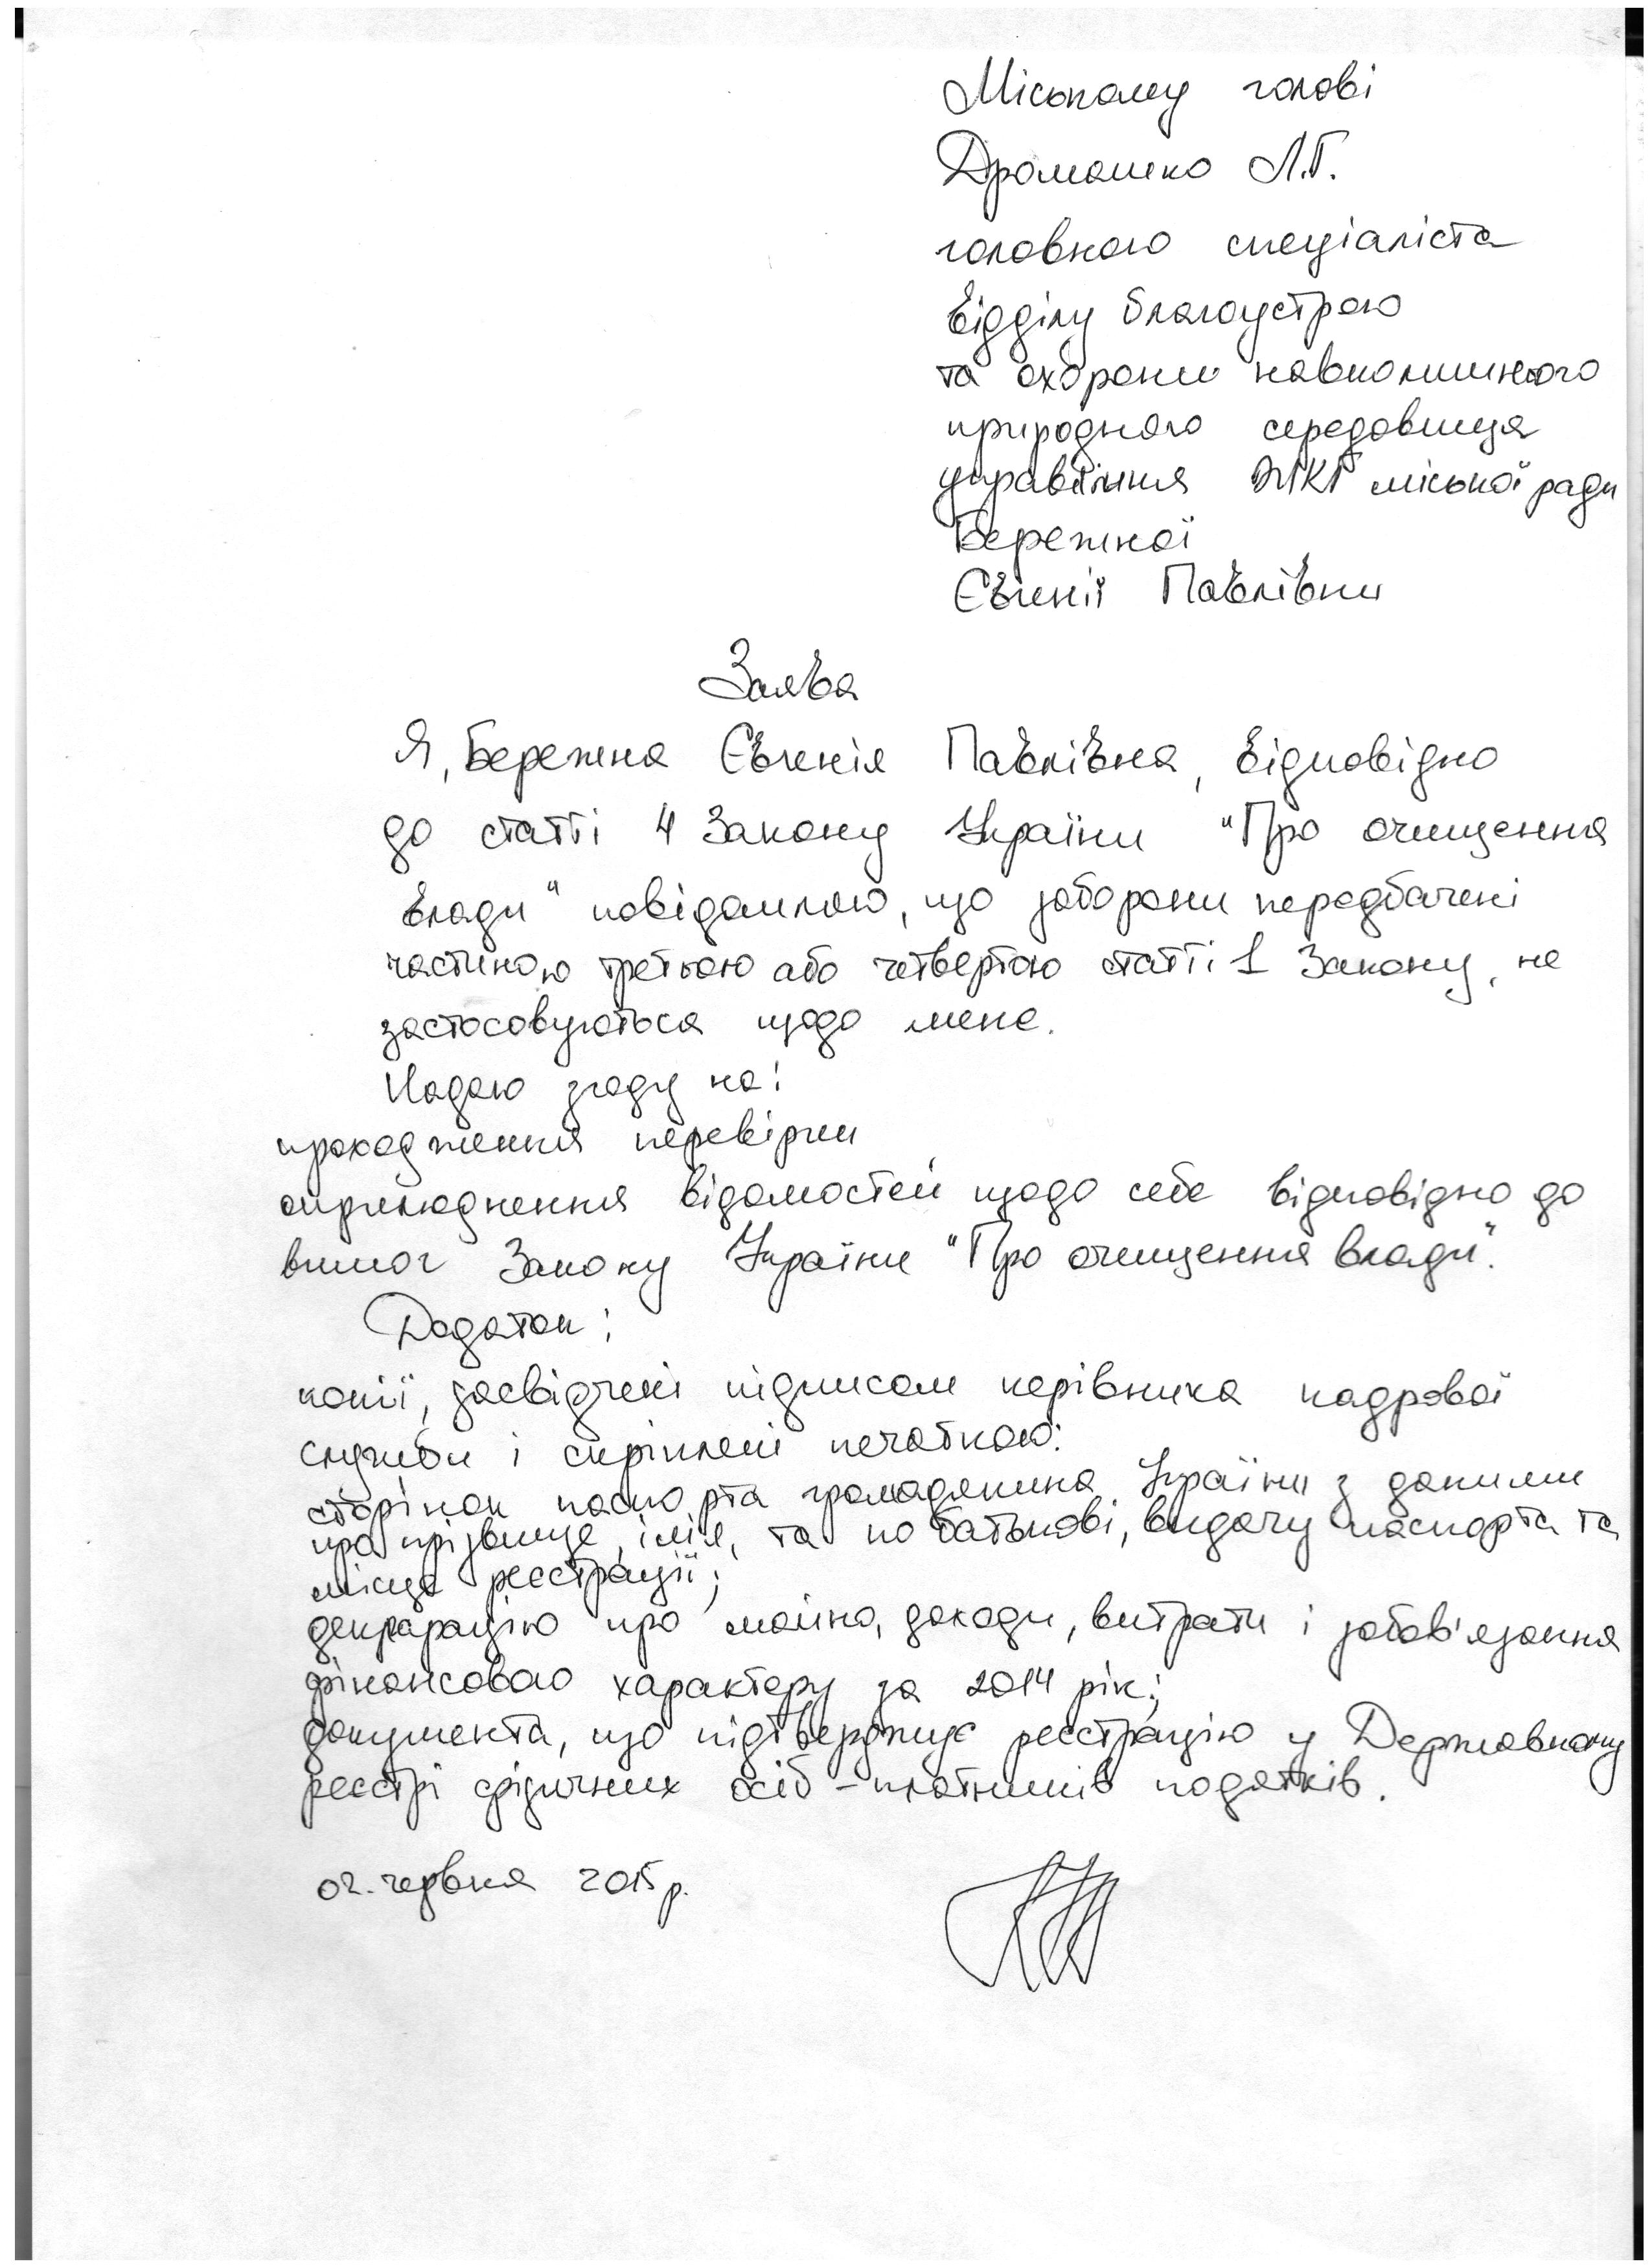 Міському голові
Дромашко Л.Г.
головного спеціаліста
відділу благоустрою
та охорони навколишнього
природного середовища
управління ЖКГ міської ради
Бережної
Євгенії Павлівни
Заява
Я, Бережна Євгенія Павлівна, відповідно
до статті 4 Закону України "Про очищення
влади" повідомляю, що заборони передбачені
частиною третьою або четвертою статті 1 Закону, не
застосовуються щодо мене.
Надаю згоду на:
проходження перевірки
оприлюднення відомостей щодо себе відповідно до
вимог Закону України "Про очищення влади".
Додаток:
копії, засвідчені підписом керівника кадрової
служби і скріплені печаткою:
сторінок паспорта громадянина України з даними
про прізвище, ім'я, та по батькові, видачу паспорта та
місце реєстрації;
декларацію про майно, доходи, витрати і зобов'язання
фінансового характеру за 2014 рік;
документа, що підтверджує реєстрацію у Державному
реєстрі фізичних осіб - платників податків.
02. червня 2015 р.